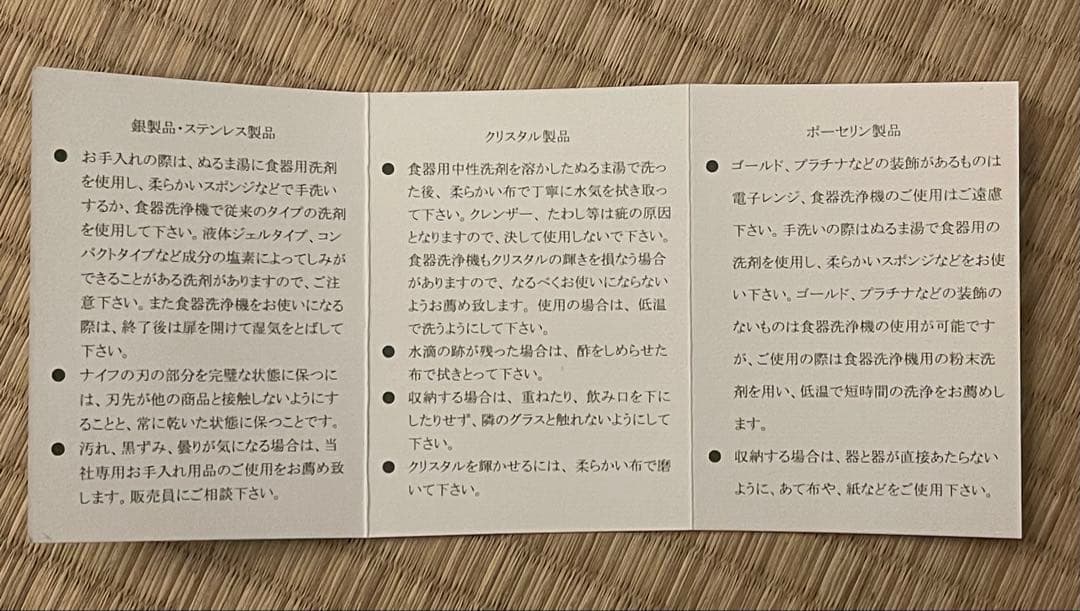 銀製品・ステンレス製品
● お手入れの際は、ぬるま湯に食器用洗剤
を使用し、柔らかいスポンジなどで手洗い
するか、食器洗浄機で従来のタイプの洗剤
を使用して下さい。液体ジェルタイプ、コン
パクトタイプなど成分の塩素によってしみが
できることがある洗剤がありますので、ご注
意下さい。また食器洗浄機をお使いになる
際は、終了後は扉を開けて湿気をとばして
下さい。
● ナイフの刃の部分を完璧な状態に保つに
は、刃先が他の商品と接触しないようにす
ることと、常に乾いた状態に保つことです。
● 汚れ、黒ずみ、曇りが気になる場合は、当
社専用お手入れ用品のご使用をお薦め致
します。販売員にご相談下さい。
クリスタル製品
● 食器用中性洗剤を溶かしたぬるま湯で洗っ
た後、柔らかい布で丁寧に水気を拭き取っ
て下さい。クレンザー、たわし等は疵の原因
となりますので、決して使用しないで下さい。
食器洗浄機もクリスタルの輝きを損なう場合
がありますので、なるべくお使いにならない
ようお薦め致します。使用の場合は、低温
で洗うようにして下さい。
● 水滴の跡が残った場合は、酢をしめらせた
布で拭きとって下さい。
● 収納する場合は、重ねたり、飲み口を下に
したりせず、隣のグラスと触れないようにして
下さい。
● クリスタルを輝かせるには、柔らかい布で磨
いて下さい。
ポーセリン製品
● ゴールド、プラチナなどの装飾があるものは
電子レンジ、食器洗浄機のご使用はご遠慮
下さい。手洗いの際はぬるま湯で食器用の
洗剤を使用し、柔らかいスポンジなどをお使
い下さい。ゴールド、プラチナなどの装飾の
ないものは食器洗浄機の使用が可能です
が、ご使用の際は食器洗浄機用の粉末洗
剤を用い、低温で短時間の洗浄をお薦めし
ます。
● 収納する場合は、器と器が直接あたらない
ように、あて布や、紙などをご使用下さい。